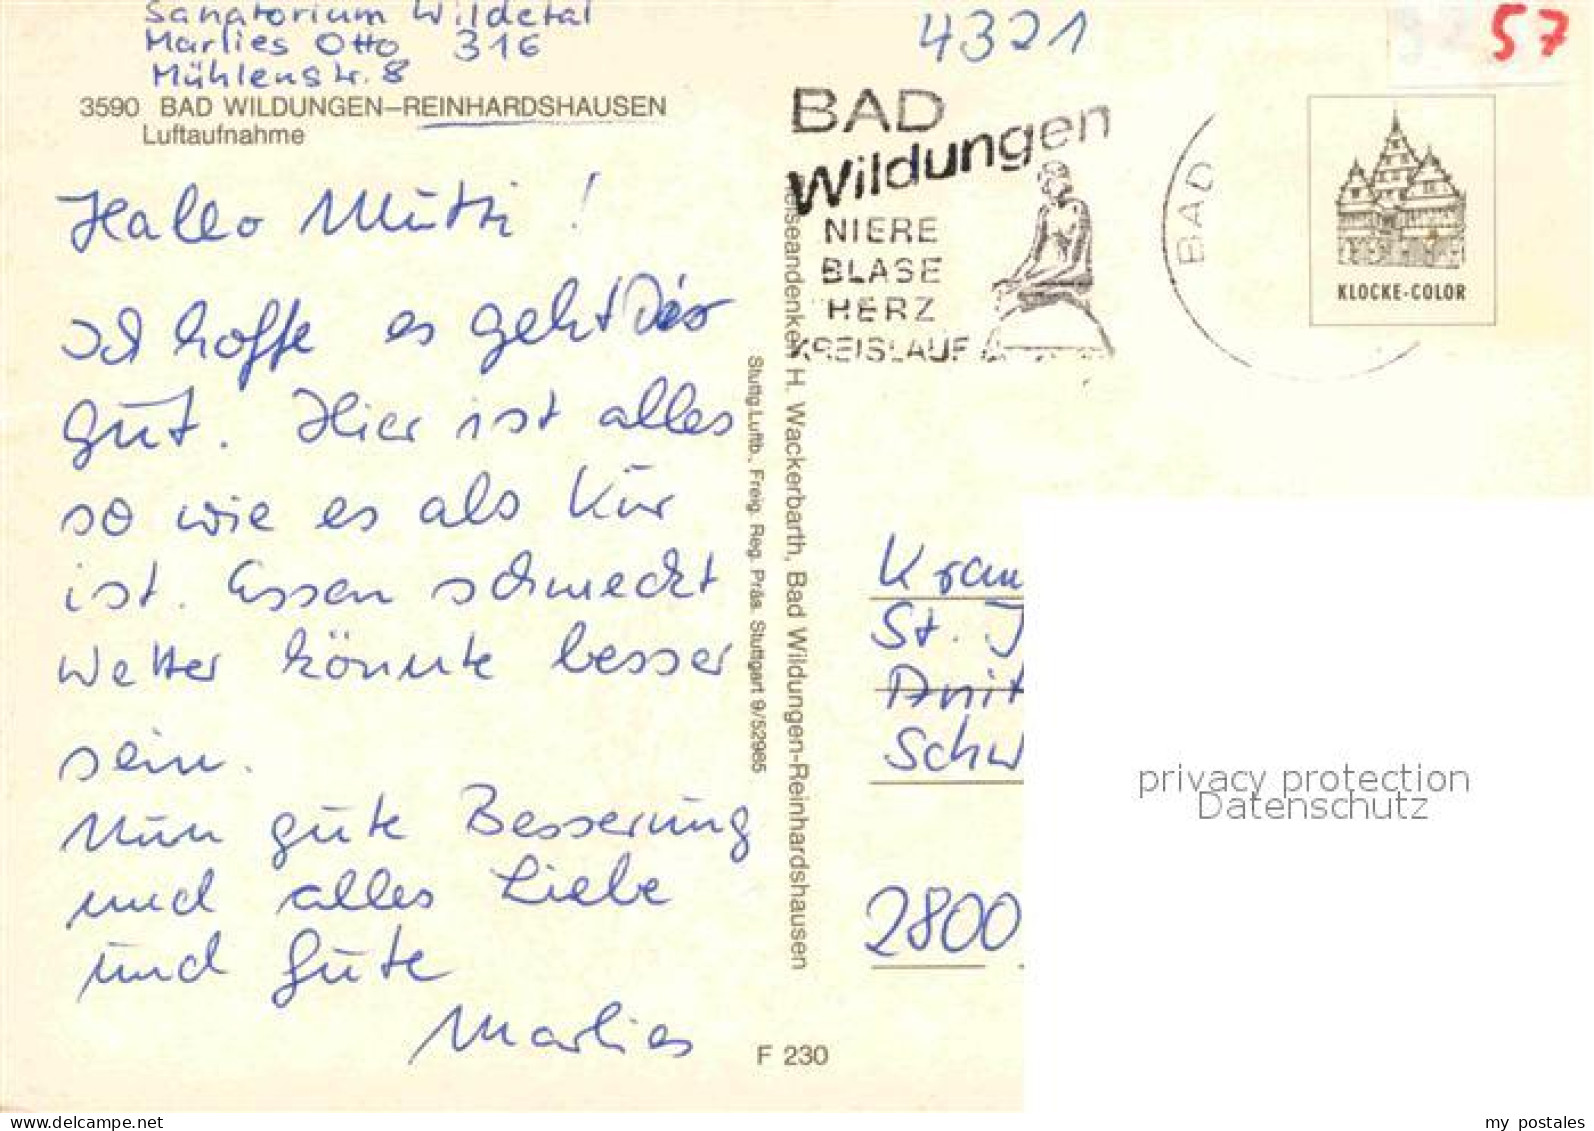 Sanatorium Wildetal
Marlies Otto 316
Mühlenstr. 8
3590 BAD WILDUNGEN–REINHARDSHAUSEN
Luftaufnahme
Hallo Mutti!
Ich hoffe es geht Dir
gut. Hier ist alles
so wie es als Kur
ist. Essen schmeckt
Wetter könnte besser
sein.
Nun gute Besserung
und alles Liebe
und Gute
Marlies
Stuttg. Luftb., Freig. Reg. Präs. Stuttgart 9/52985
eiseandenken H. Wackerbarth, Bad Wildungen-Reinhardshausen
F 230
4321
57
BAD
Wildungen
NIERE
BLASE
HERZ
KREISLAUF
BAD
KLOCKE-COLOR
Kran
St. J
Anit
Schw
2800
privacy protection
Datenschutz
my postales